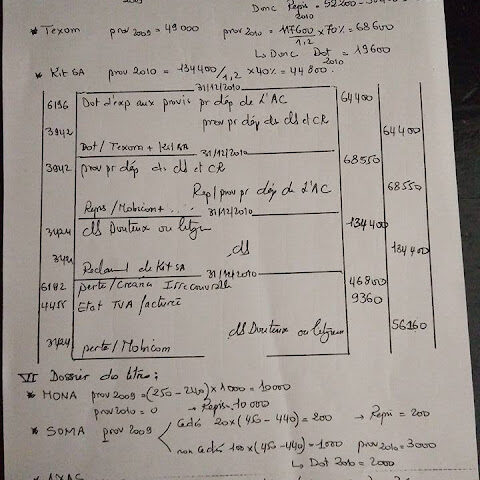 Donc Repis 2010 = 52200 -
* Texom prov 2009 = 49000 prov 2010 = 117600/1,2 × 70% = 68600
↳ Donc Dot 2010 = 19600
* Kit SA prov 2010 = 134400/1,2 × 40% = 44800.
31/12/2010
6196 Dot d'exp aux provis pr dép de L'AC 64400
3942 prov pr dép ds cls et CR 64400
Dot / Texom + Kit SA
31/12/2010
3942 prov pr dép ds cls et CR 68550
Rep / prov pr dép de L'AC 68550
Repis / Mobicom + ....
31/12/2010
3424 cls Douteux ou litgx 134400
3421 cls 134400
Reclamt de Kit SA
31/12/2010
6182 perte / Creanc Irrecouvrable 46800
4455 Etat TVA facturée 9360
3424 cls Douteux ou litigieux 56160
perte / Mobicom
VI Dossier des titres :
* MONA prov 2009 = (250 - 240) × 1000 = 10000
prov 2010 = 0 → Repis 10000
* SOMA prov 2009 cédés 20 × (450 - 440) = 200 → Repis = 200
non cédés 100 × (450 - 440) = 1000 prov 2010 = 3000
↳ Dot 2010 = 2000